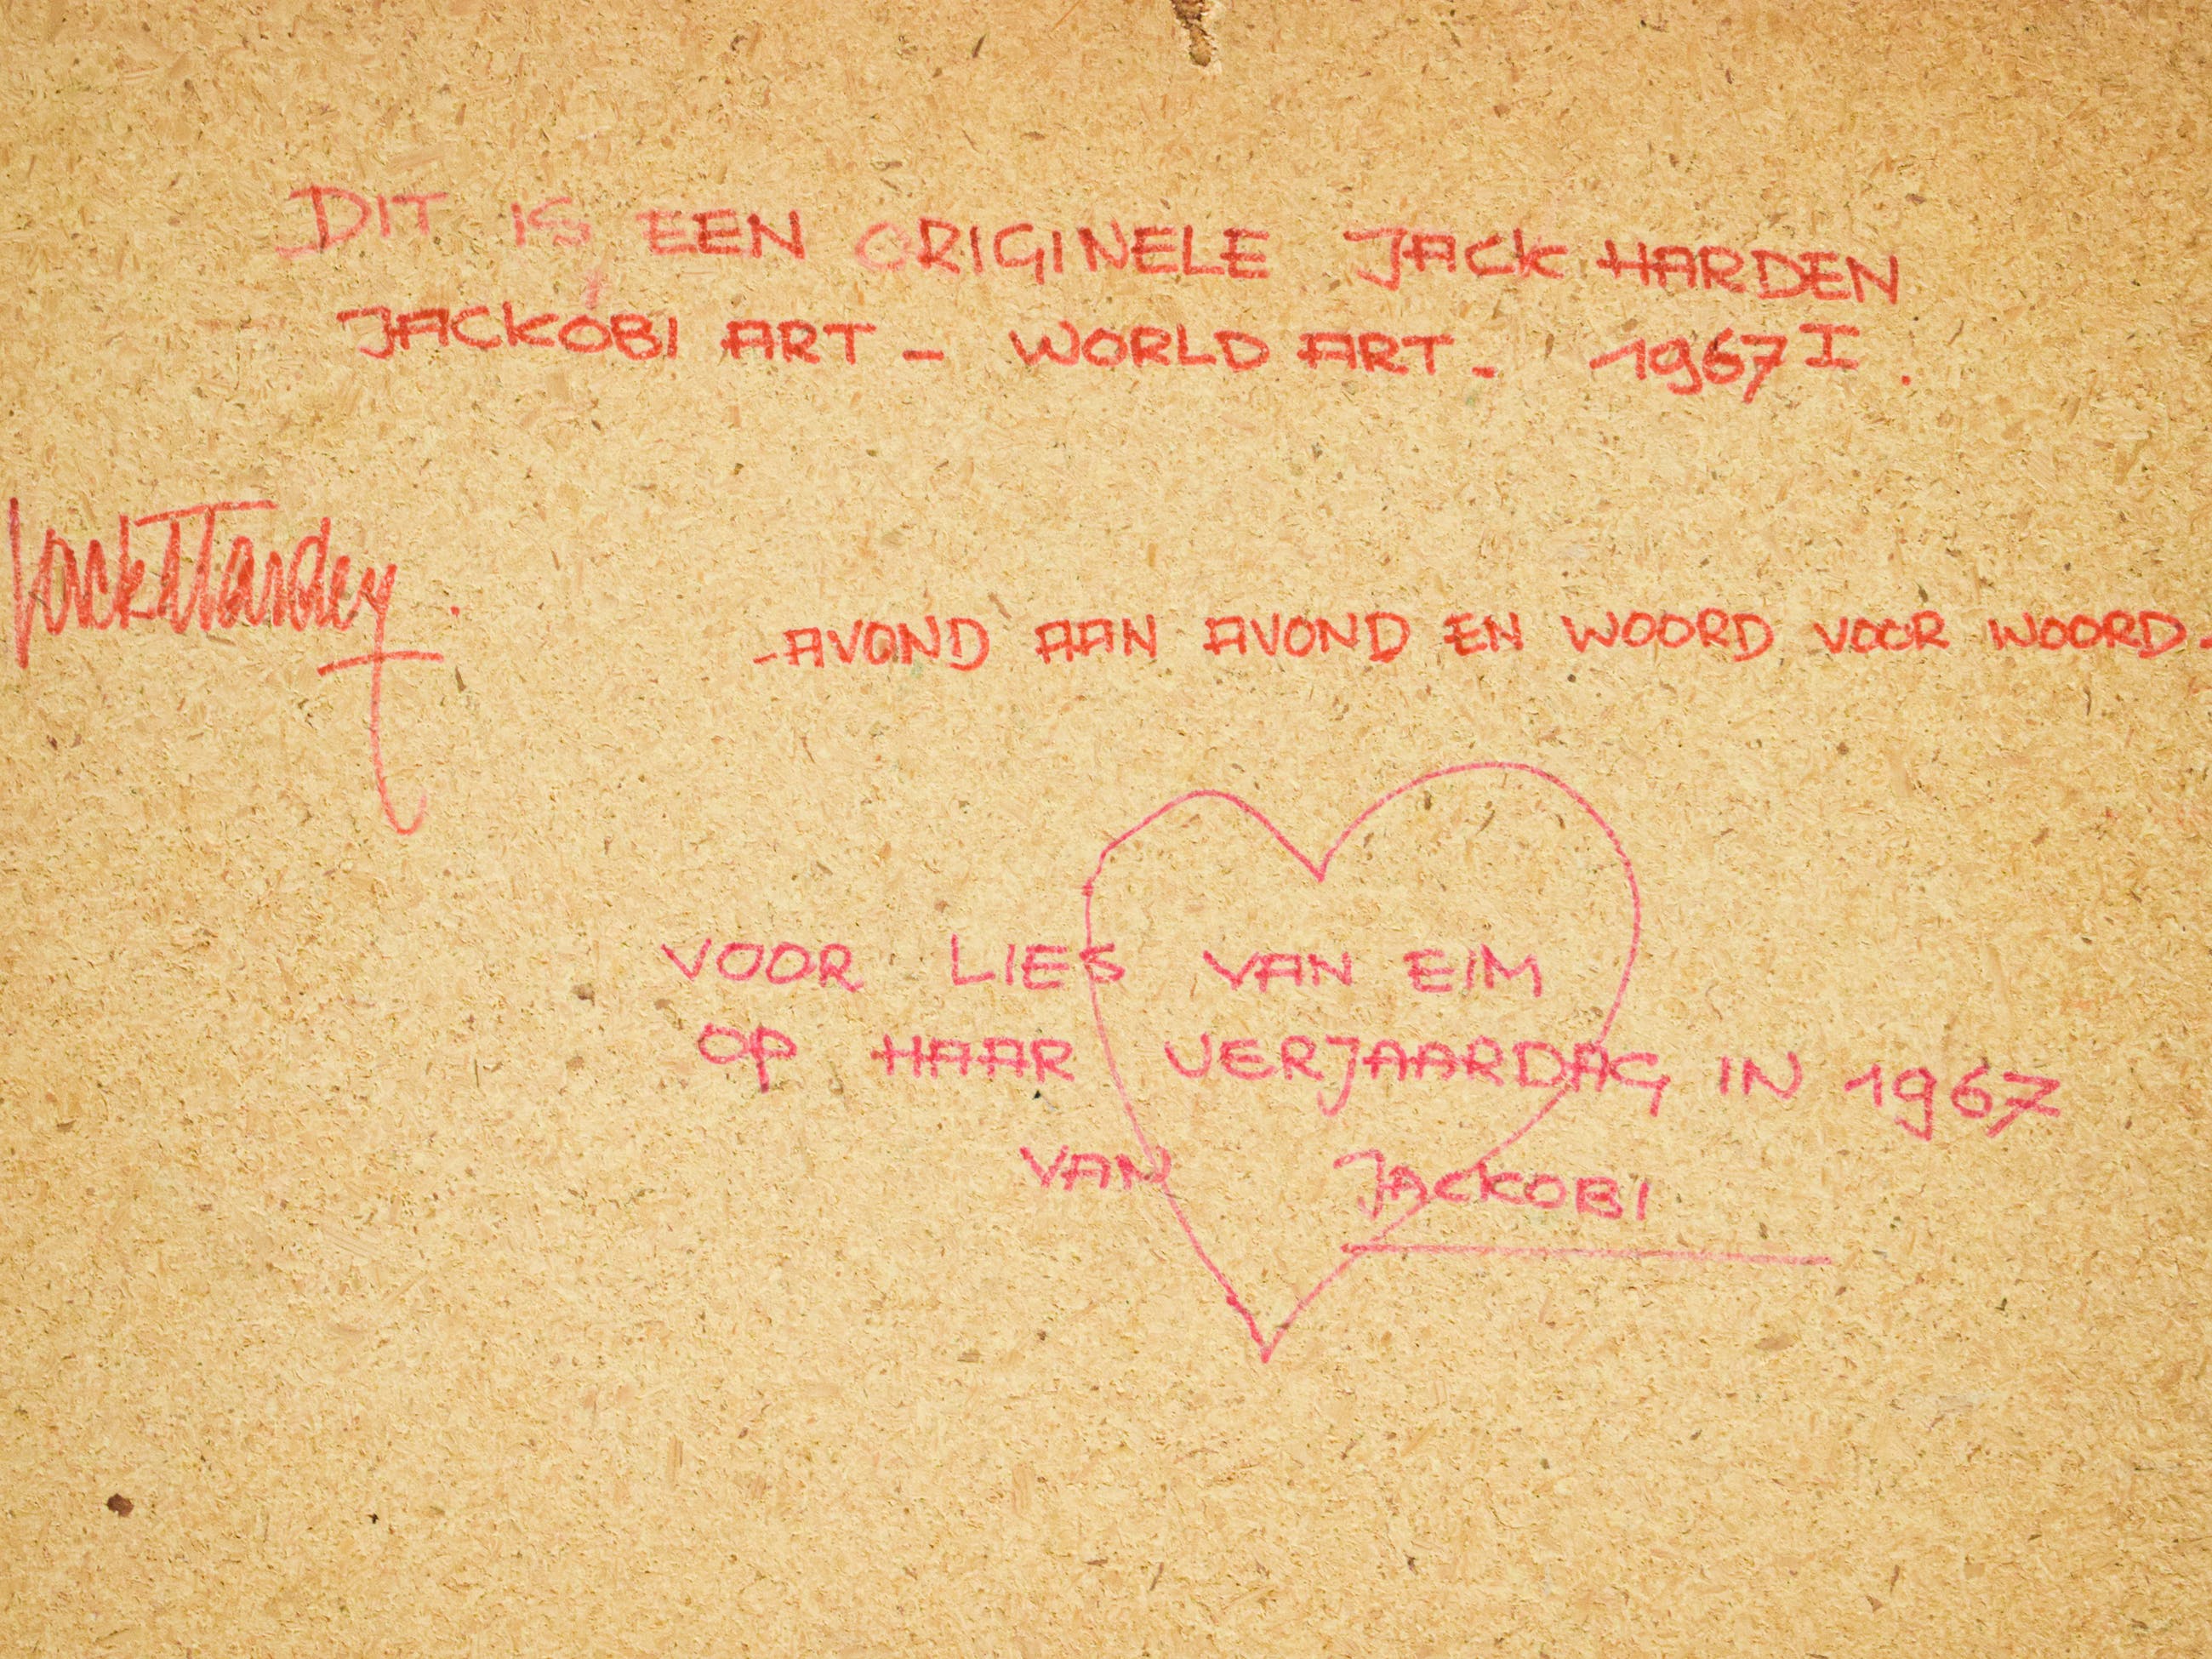 DIT IS EEN ORIGINELE JACK HARDEN
JACKOBI ART - WORLD ART - 1967 I.
Jack Harden.
- AVOND AAN AVOND EN WOORD VOOR WOORD -
VOOR LIES VAN EIM
OP HAAR VERJAARDAG IN 1967
VAN JACKOBI